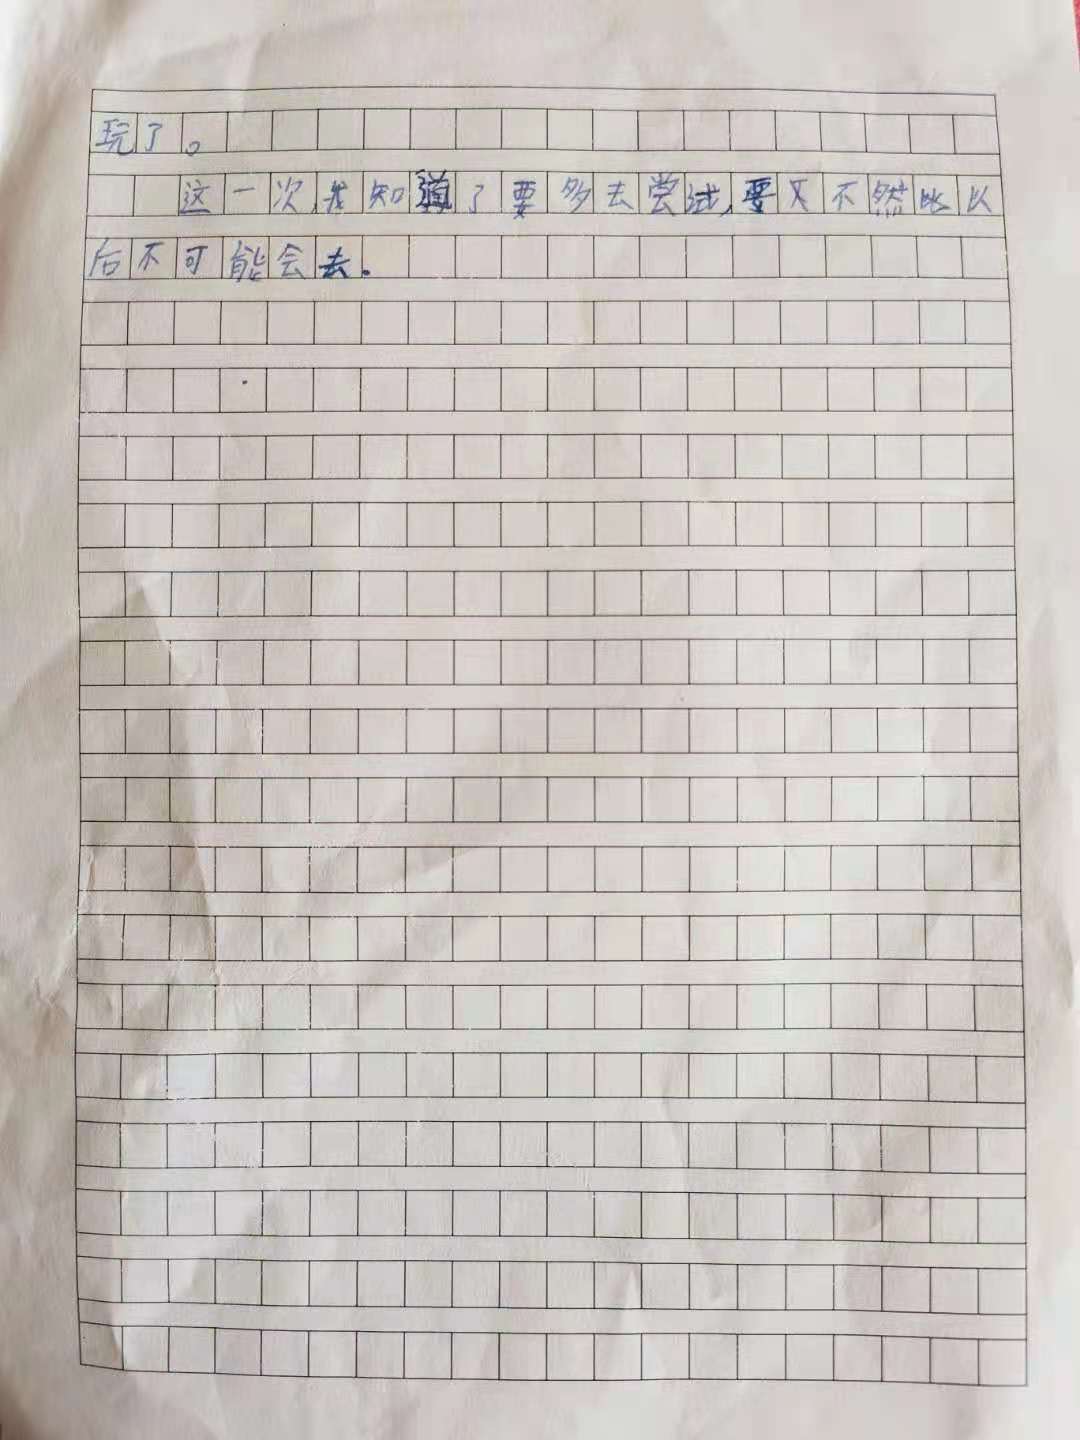 玩了。
这一次,我知道了要多去尝试,要不不然以
后不可能会去.